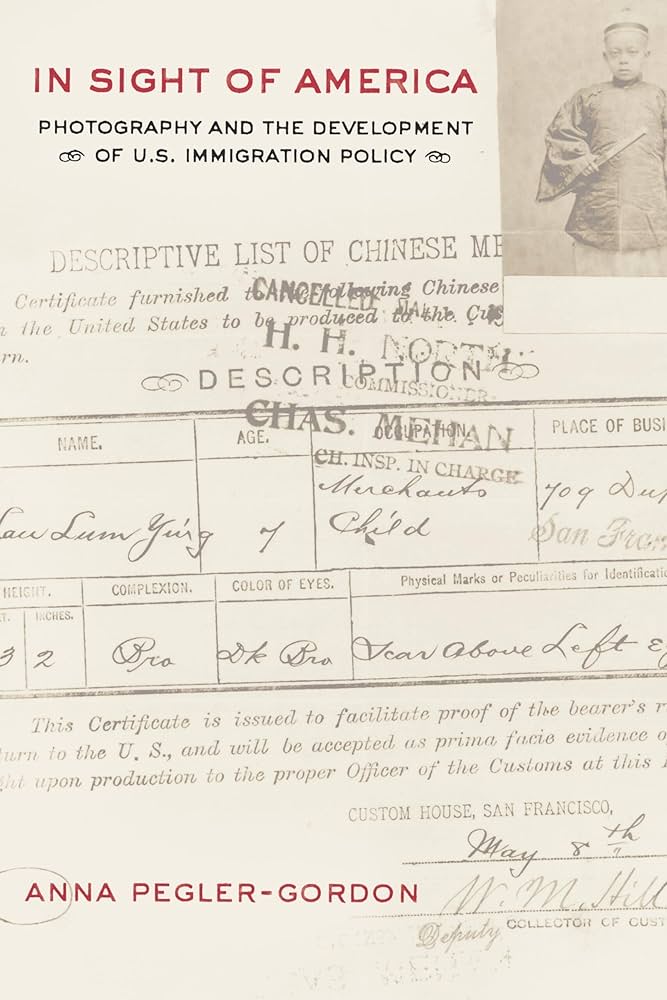 IN SIGHT OF AMERICA
PHOTOGRAPHY AND THE DEVELOPMENT
OF U.S. IMMIGRATION POLICY
DESCRIPTIVE LIST OF CHINESE ME
Certificate furnished to the following Chinese
n the United States to be produced to the Cus
rn.
CANCELLED
H. H. NORTH
COMMISSIONER
DESCRIPTION
CHAS. MEHAN
CH. INSP. IN CHARGE
NAME. AGE. OCCUPATION PLACE OF BUSI
Lau Lum Ying 7 Merchants Child 709 Dup
San Fran
HEIGHT. COMPLEXION. COLOR OF EYES. Physical Marks or Peculiarities for Identificatio
FT. INCHES.
3 2 Bro Dk Bro Scar above Left Ey
This Certificate is issued to facilitate proof of the bearer's r
turn to the U. S., and will be accepted as prima facie evidence o
ght upon production to the proper Officer of the Customs at this
CUSTOM HOUSE, SAN FRANCISCO,
May 8th
ANNA PEGLER-GORDON
W. M. Hill
Deputy COLLECTOR OF CUST